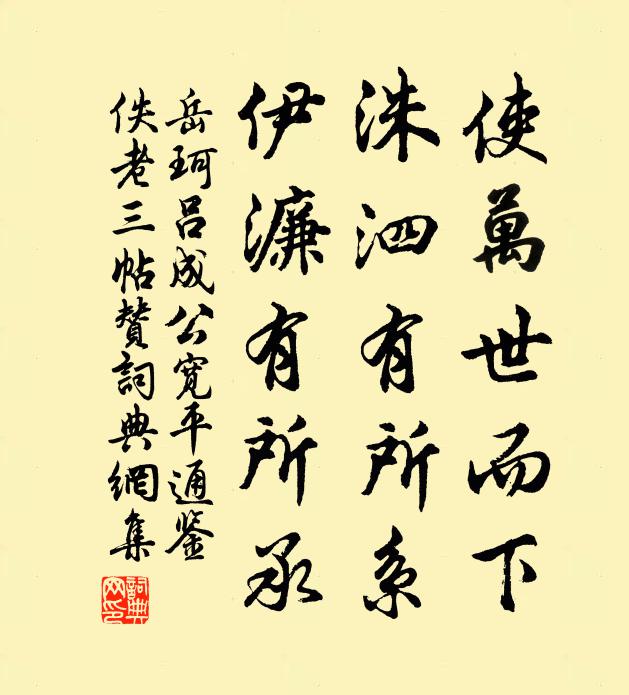 使萬世而下
洙泗有所系
伊濂有所承
岳珂呂成公寬平通鉴
佚老三帖赞詞典網集
詞典网印